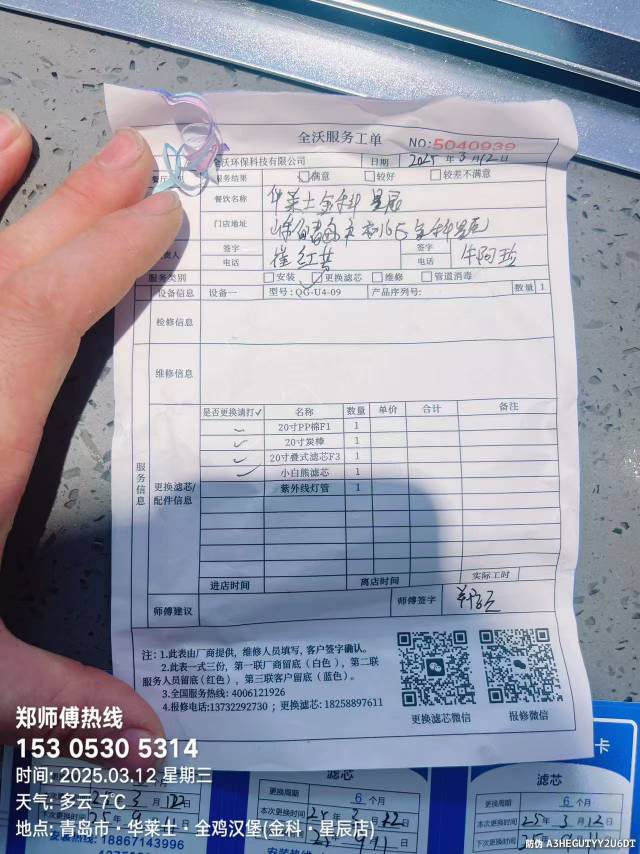 全沃服务工单
NO:5040939
全沃环保科技有限公司 日期 2025 年 3 月 12 日
餐厅 服务结果 满意 较好 较差不满意
餐饮名称 华莱士金科星辰
门店地址
签字 电话 签字 电话
服务类别 安装 更换滤芯 维修 管道消毒
设备信息 设备一 型号:QG-U4-09 产品序列号: 数量 1
检修信息
维修信息
服务信息
更换滤芯/配件信息
是否更换请打✓ 名称 数量 单价 合计 备注
✓ 20寸PP棉F1 1
✓ 20寸炭棒 1
✓ 20寸叠式滤芯F3 1
✓ 小白熊滤芯 1
紫外线灯管 1
进店时间 离店时间 实际工时
师傅建议 师傅签字
注：1.此表由厂商提供，维修人员填写，客户签字确认。
2.此表一式三份，第一联厂商留底（白色），第二联
服务人员留底(红色)，第三联客户留底（蓝色）。
3.全国服务热线: 4006121926
4.报修电话:13732292730；更换滤芯: 18258897611
更换滤芯微信 报修微信
郑师傅热线
153 0530 5314
时间: 2025.03.12 星期三
天气: 多云 7℃
地点: 青岛市·华莱士·全鸡汉堡(金科·星辰店)
卡
滤芯 滤芯
更换周期 6 个月 更换周期 6 个月
本次更换时间 25 3 12 本次更换时间 25 3 12
下次更换时间 25 9 11 下次更换时间 25 9 11
安装热线: 18867143996
防伪 A3HEGUTYY2U6DT